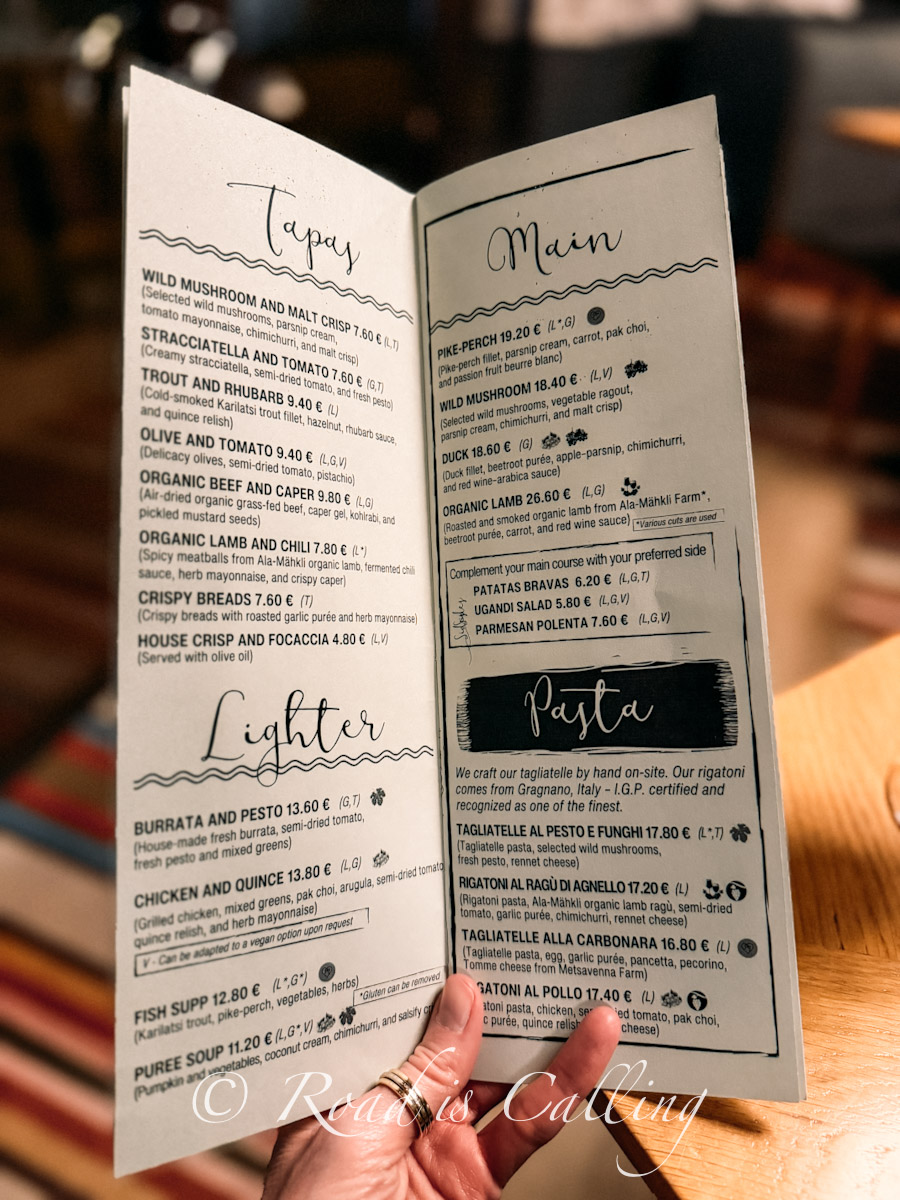 Tapas
WILD MUSHROOM AND MALT CRISP 7.60 € (L,T)
(Selected wild mushrooms, parsnip cream,
tomato mayonnaise, chimichurri, and malt crisp)
STRACCIATELLA AND TOMATO 7.60 € (G,T)
(Creamy stracciatella, semi-dried tomato, and fresh pesto)
TROUT AND RHUBARB 9.40 € (L)
(Cold-smoked Karilatsi trout fillet, hazelnut, rhubarb sauce,
and quince relish)
OLIVE AND TOMATO 9.40 € (L,G,V)
(Delicacy olives, semi-dried tomato, pistachio)
ORGANIC BEEF AND CAPER 9.80 € (L,G)
(Air-dried organic grass-fed beef, caper gel, kohlrabi, and
pickled mustard seeds)
ORGANIC LAMB AND CHILI 7.80 € (L*)
(Spicy meatballs from Ala-Mähkli organic lamb, fermented chili
sauce, herb mayonnaise, and crispy caper)
CRISPY BREADS 7.60 € (T)
(Crispy breads with roasted garlic purée and herb mayonnaise)
HOUSE CRISP AND FOCACCIA 4.80 € (L,V)
(Served with olive oil)
Lighter
BURRATA AND PESTO 13.60 € (G,T)
(House-made fresh burrata, semi-dried tomato,
fresh pesto and mixed greens)
CHICKEN AND QUINCE 13.80 € (L,G)
(Grilled chicken, mixed greens, pak choi, arugula, semi-dried tomato
quince relish, and herb mayonnaise)
V - Can be adapted to a vegan option upon request
FISH SUPP 12.80 € (L*,G*)
(Karilatsi trout, pike-perch, vegetables, herbs)
*Gluten can be removed
PUREE SOUP 11.20 € (L,G*,V)
(Pumpkin and vegetables, coconut cream, chimichurri, and salsify
Main
PIKE-PERCH 19.20 € (L*,G)
(Pike-perch fillet, parsnip cream, carrot, pak choi,
and passion fruit beurre blanc)
WILD MUSHROOM 18.40 € (L,V)
(Selected wild mushrooms, vegetable ragout,
parsnip cream, chimichurri, and malt crisp)
DUCK 18.60 € (G)
(Duck fillet, beetroot purée, apple-parsnip, chimichurri,
and red wine-arabica sauce)
ORGANIC LAMB 26.60 € (L,G)
(Roasted and smoked organic lamb from Ala-Mähkli Farm*,
beetroot purée, carrot, and red wine sauce) *Various cuts are used
Complement your main course with your preferred side
PATATAS BRAVAS 6.20 € (L,G,T)
UGANDI SALAD 5.80 € (L,G,V)
PARMESAN POLENTA 7.60 € (L,G,V)
Pasta
We craft our tagliatelle by hand on-site. Our rigatoni
comes from Gragnano, Italy - I.G.P. certified and
recognized as one of the finest.
TAGLIATELLE AL PESTO E FUNGHI 17.80 € (L*,T)
(Tagliatelle pasta, selected wild mushrooms,
fresh pesto, rennet cheese)
RIGATONI AL RAGÙ DI AGNELLO 17.20 € (L)
(Rigatoni pasta, Ala-Mähkli organic lamb ragù, semi-dried
tomato, garlic purée, chimichurri, rennet cheese)
TAGLIATELLE ALLA CARBONARA 16.80 € (L)
(Tagliatelle pasta, egg, garlic purée, pancetta, pecorino,
Tomme cheese from Metsavenna Farm)
GATONI AL POLLO 17.40 € (L)
pasta, chicken, tomato, pak choi,
purée, quince relish cheese)
© Road is Calling